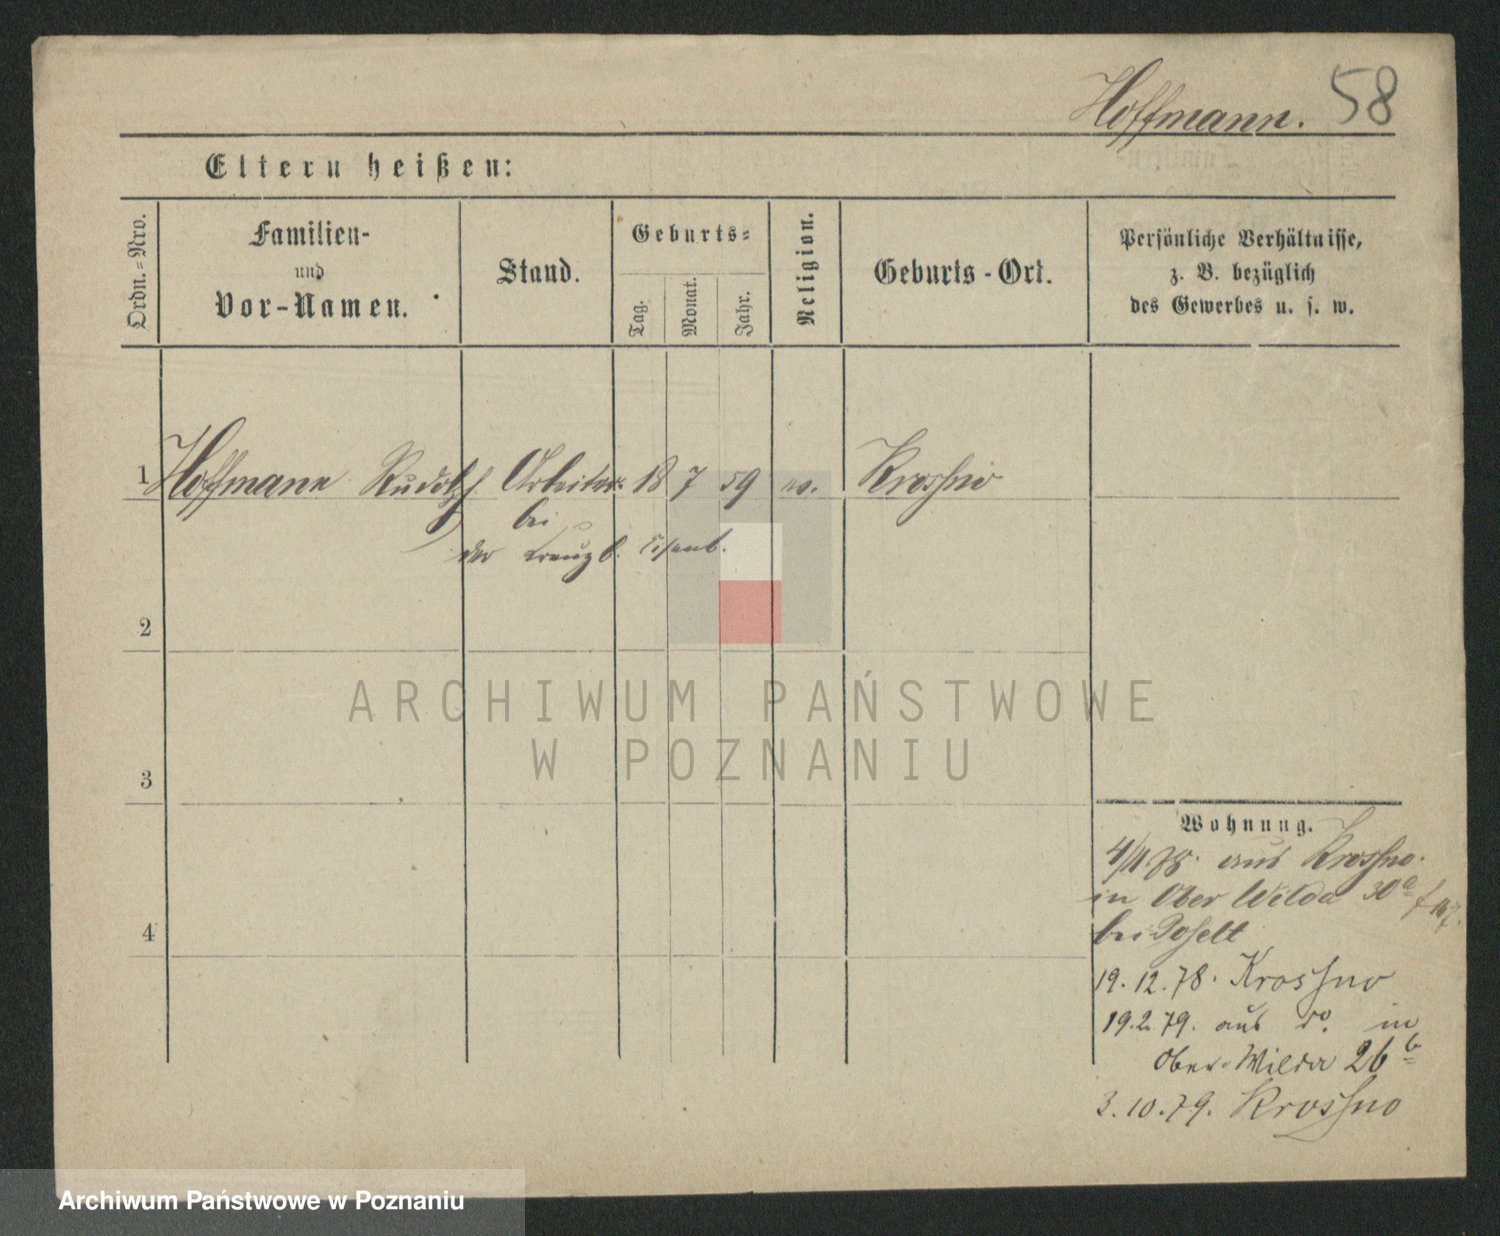 Hoffmann. 58
Eltern heißen:
Ordn.=Nro.
Familien-
und
Vor-Namen.
Stand.
Geburts=
Tag.
Monat.
Jahr.
Religion.
Geburts-Ort.
Persönliche Verhältnisse,
z. B. bezüglich
des Gewerbes u. s. w.
1 Hoffmann Rudolf Arbeiter 18 7 59 ev. Krossno
bei
der Kreuzb. Eisenb.
2
ARCHIWUM PAŃSTWOWE
W POZNANIU
3
Wohnung.
4/11 78. aus Krossno.
in Ober Wilda 30a
bei Poselt
4
19. 12. 78. Krossno
19. 2. 79. aus do. in
Ober-Wilda 26b
3. 10. 79. Krossno
Archiwum Państwowe w Poznaniu